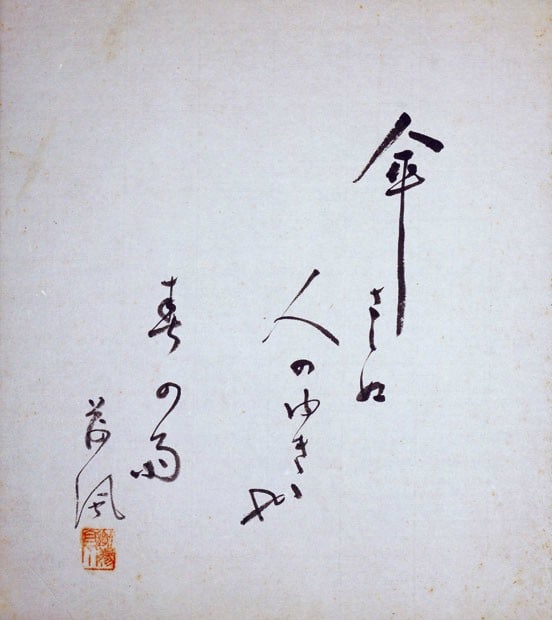 傘さゝぬ
人のゆきゝや
春の雨
荷風